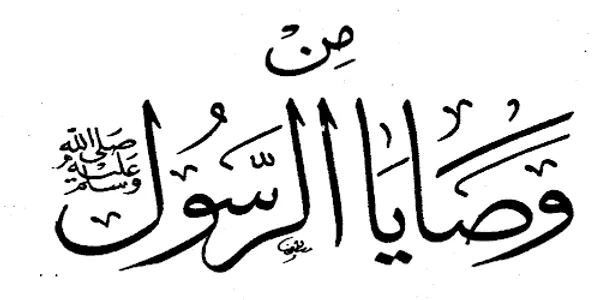 مِنْ
وَصَايَا الرَّسُول صَلَّى اللَّه عَلَيْهِ وَسَلَّم